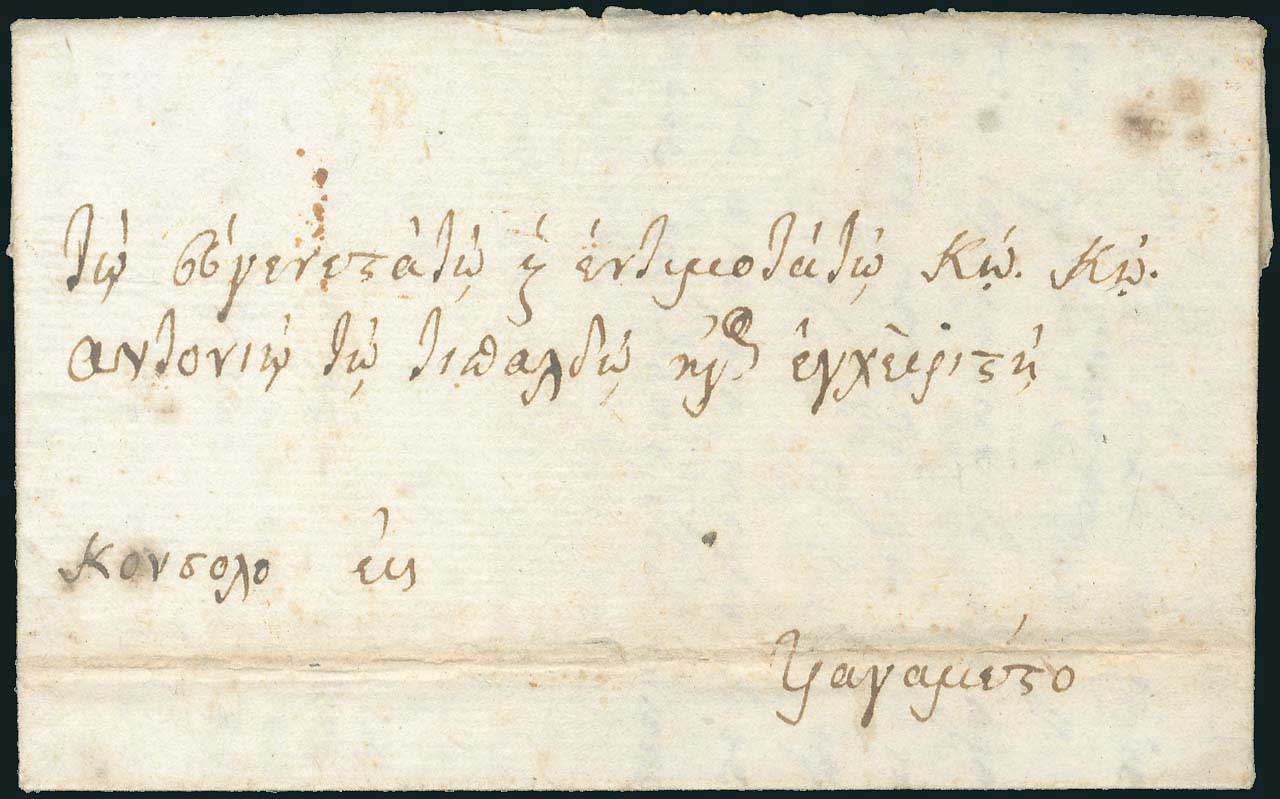 τῷ εὐγενεστάτῳ ϗ ἐντιμοτάτῳ Κῳ. Κῳ.
αντονιῳ τῷ τιπαλδῳ ἐγχειριστῇ
κονσολο εις